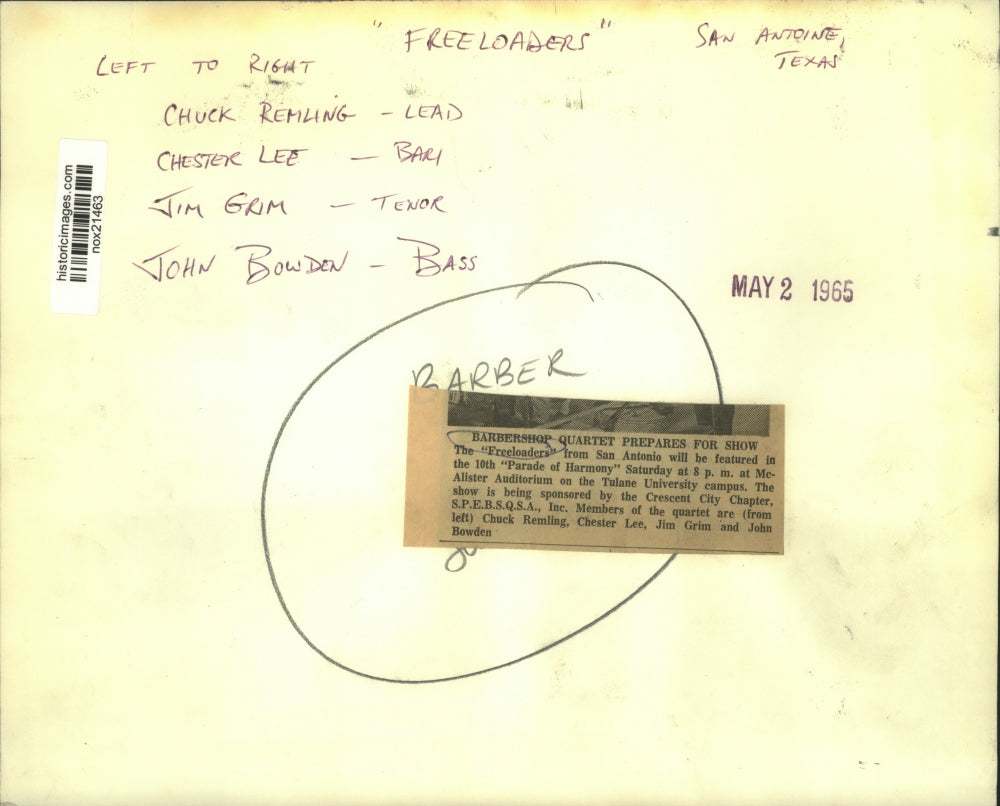 "FREELOADERS"
SAN ANTOINE,
TEXAS
LEFT TO RIGHT
CHUCK REMLING - LEAD
CHESTER LEE - BARI
JIM GRIM - TENOR
JOHN BOWDEN - BASS
historicimages.com
nox21463
MAY 2 1965
BARBER
BARBERSHOP QUARTET PREPARES FOR SHOW
The "Freeloaders" from San Antonio will be featured in
the 10th "Parade of Harmony" Saturday at 8 p. m. at Mc-
Alister Auditorium on the Tulane University campus. The
show is being sponsored by the Crescent City Chapter,
S.P.E.B.S.Q.S.A., Inc. Members of the quartet are (from
left) Chuck Remling, Chester Lee, Jim Grim and John
Bowden